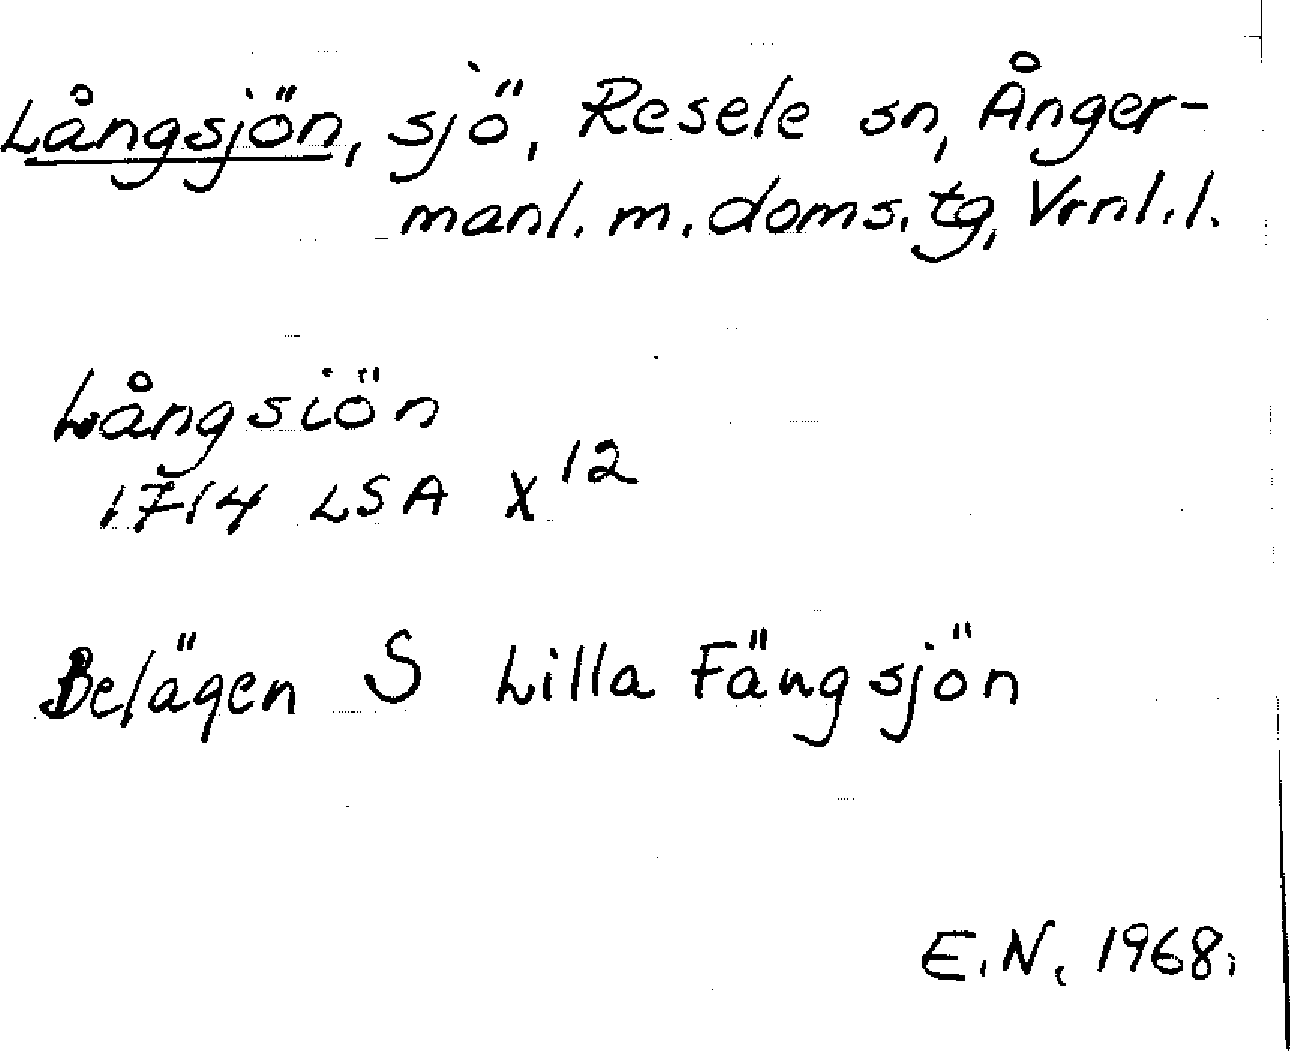 Långsjön, sjö, Resele sn, Ånger-
manl. m. doms. tg, Vrnl. l.
Långsiön
1714 LSA X 12
Belägen S Lilla Fängsjön
E. N. 1968.